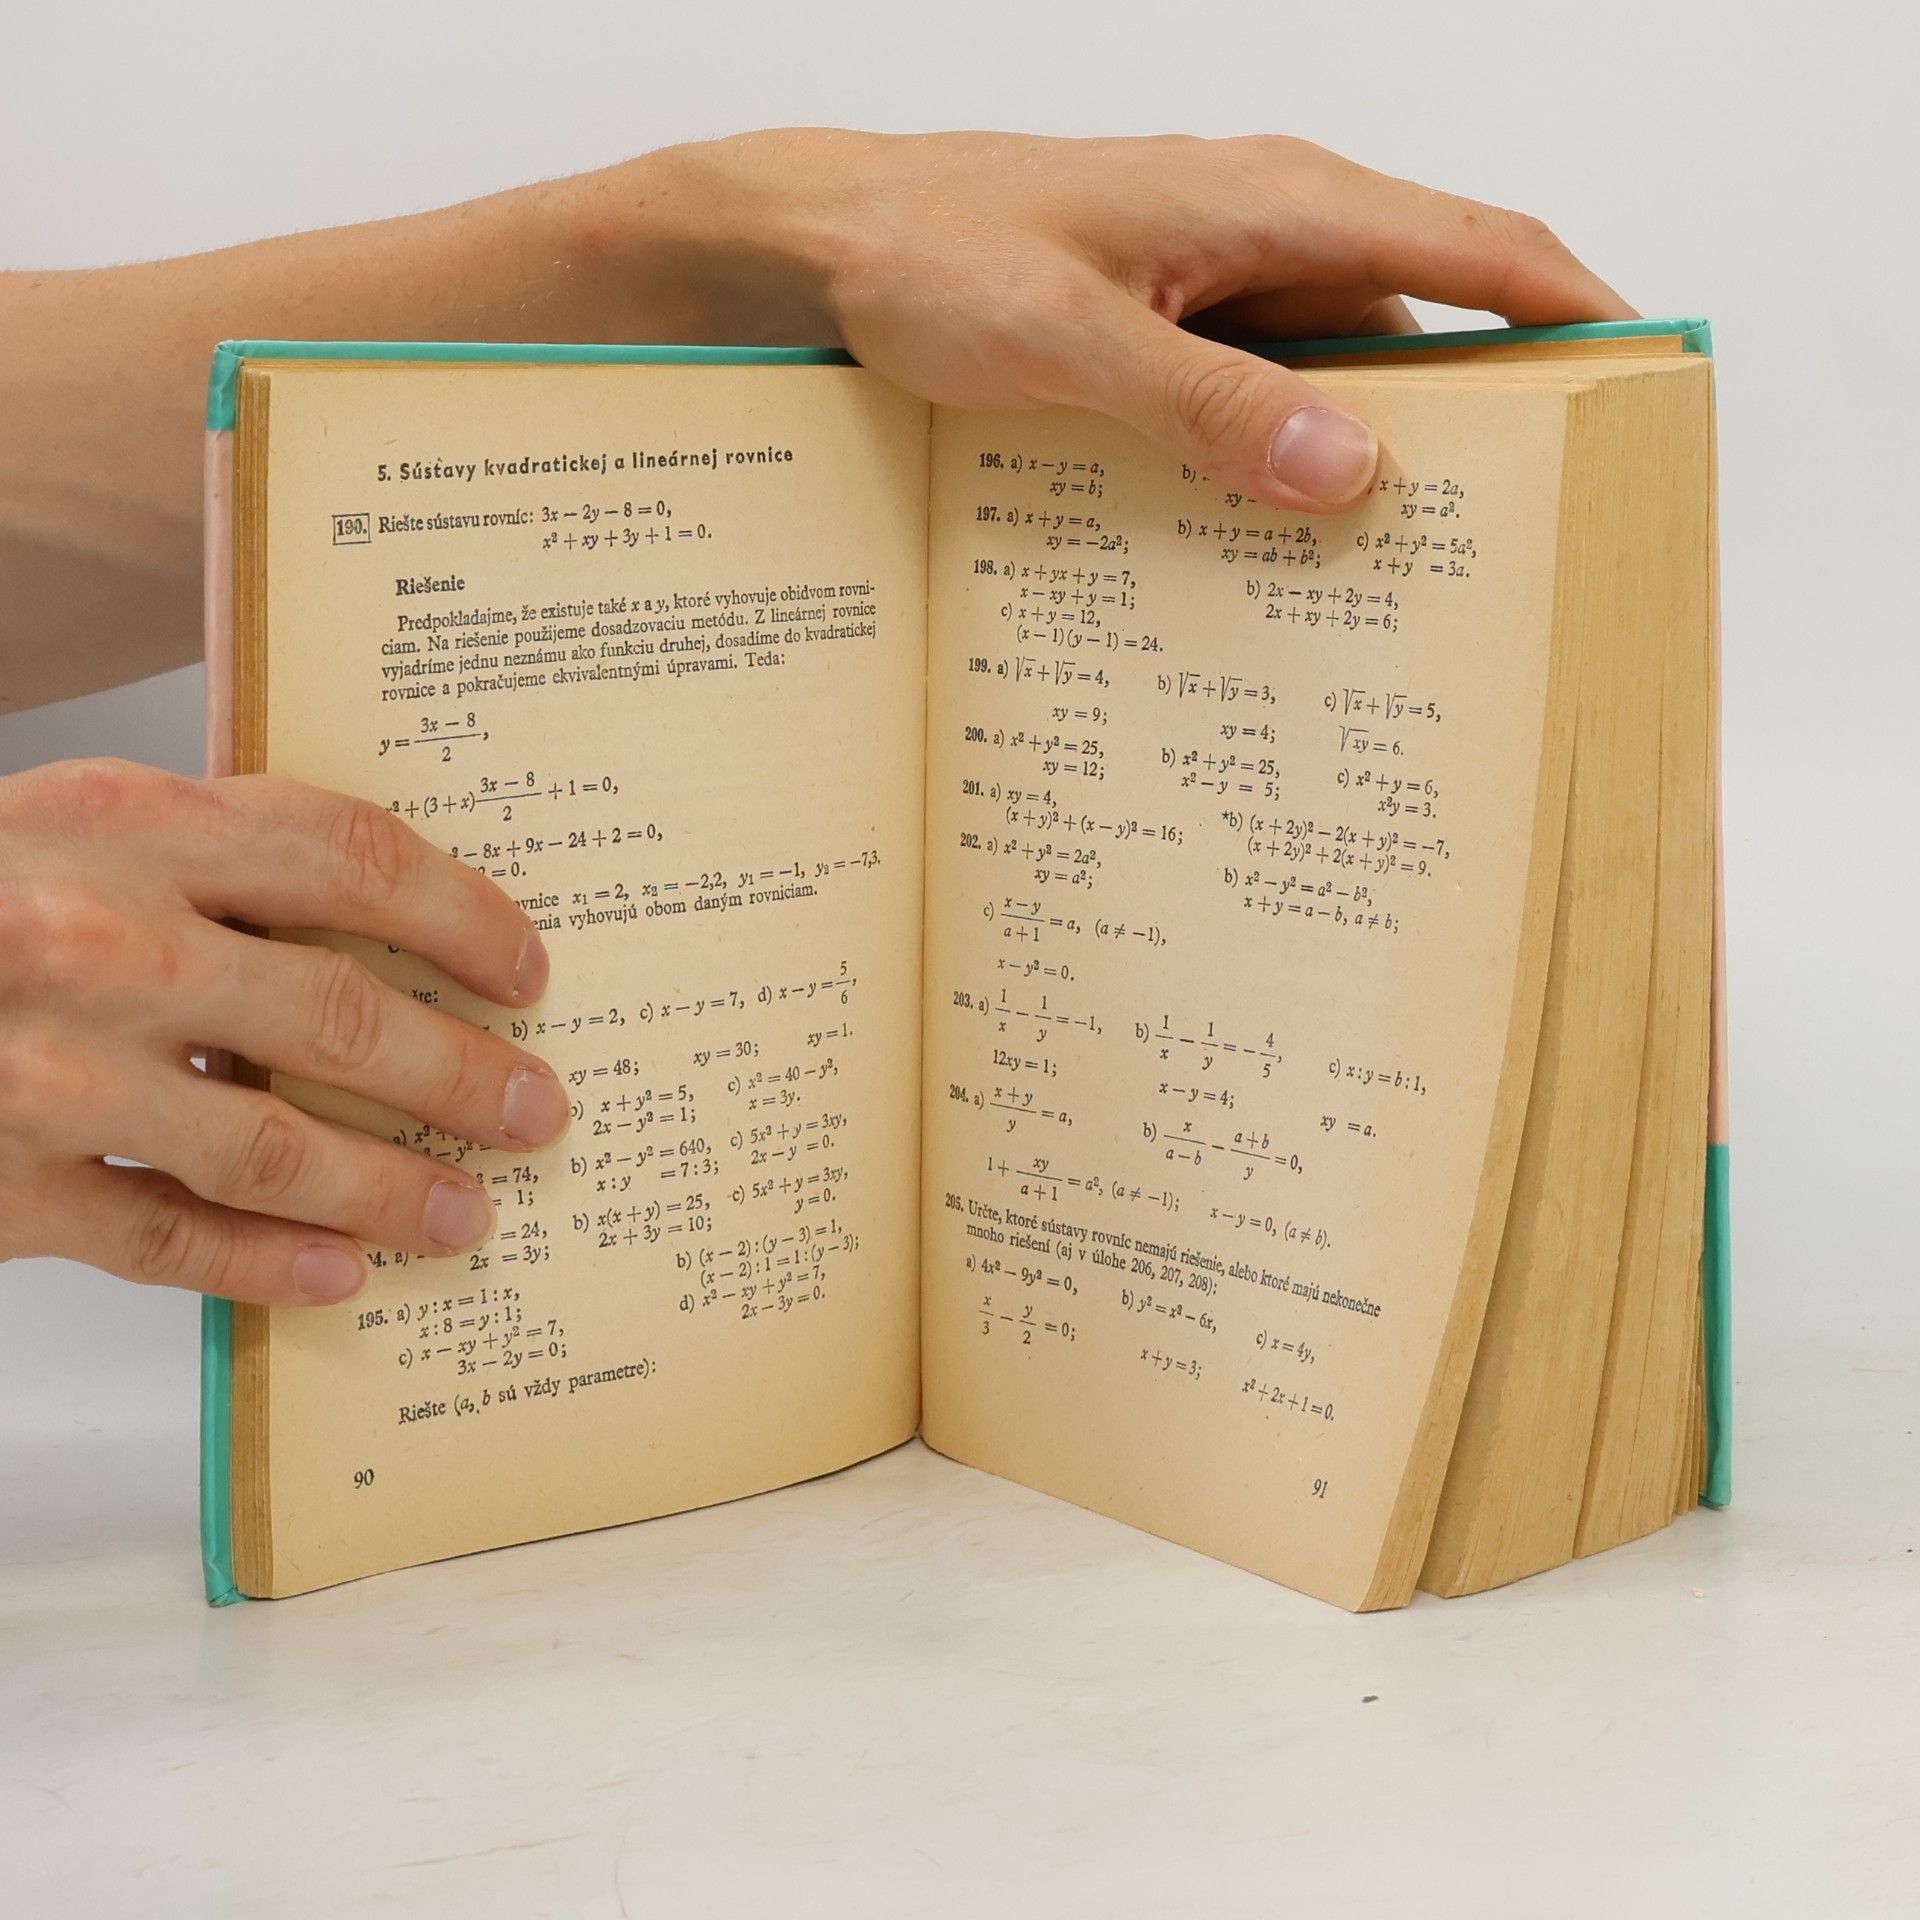 5. Sústavy kvadratickej a lineárnej rovnice
190. Riešte sústavu rovníc: 3x − 2y − 8 = 0,
x² + xy + 3y + 1 = 0.
Riešenie
Predpokladajme, že existuje také x a y, ktoré vyhovuje obidvom rovni-
ciam. Na riešenie použijeme dosadzovaciu metódu. Z lineárnej rovnice
vyjadríme jednu neznámu ako funkciu druhej, dosadíme do kvadratickej
rovnice a pokračujeme ekvivalentnými úpravami. Teda:
y = (3x − 8)/2,
+ (3 + x) (3x − 8)/2 + 1 = 0,
− 8x + 9x − 24 + 2 = 0,
= 0.
x₁ = 2, x₂ = −2,2, y₁ = −1, y₂ = −7,3.
vyhovujú obom daným rovniciam.
b) x − y = 2, c) x − y = 7, d) x − y = 5/6,
xy = 48; xy = 30; xy = 1.
b) x + y² = 5, c) x² = 40 − y²,
2x − y² = 1; x = 3y.
= 74, b) x² − y² = 640, c) 5x² + y = 3xy,
= 1; x : y = 7 : 3; 2x − y = 0.
= 24, b) x(x + y) = 25, c) 5x² + y = 3xy,
2x = 3y; 2x + 3y = 10; y = 0.
195. a) y : x = 1 : x, b) (x − 2) : (y − 3) = 1,
x : 8 = y : 1; (x − 2) : 1 = 1 : (y − 3);
c) x − xy + y² = 7, d) x² − xy + y² = 7,
3x − 2y = 0; 2x − 3y = 0.
Riešte (a, b sú vždy parametre):
90
196. a) x − y = a, b) x + y = 2a,
xy = b; xy xy = a².
197. a) x + y = a, b) x + y = a + 2b, c) x² + y² = 5a²,
xy = −2a²; xy = ab + b²; x + y = 3a.
198. a) x + yx + y = 7, b) 2x − xy + 2y = 4,
x − xy + y = 1; 2x + xy + 2y = 6;
c) x + y = 12,
(x − 1)(y − 1) = 24.
199. a) √x + √y = 4, b) √x + √y = 3, c) √x + √y = 5,
xy = 9; xy = 4; √xy = 6.
200. a) x² + y² = 25, b) x² + y² = 25, c) x² + y = 6,
xy = 12; x² − y = 5; x²y = 3.
201. a) xy = 4, *b) (x + 2y)² − 2(x + y)² = −7,
(x + y)² + (x − y)² = 16; (x + 2y)² + 2(x + y)² = 9.
202. a) x² + y² = 2a², b) x² − y² = a² − b²,
xy = a²; x + y = a − b, a ≠ b;
c) (x − y)/(a + 1) = a, (a ≠ −1),
x − y² = 0.
203. a) 1/x − 1/y = −1, b) 1/x − 1/y = −4/5, c) x : y = b : 1,
12xy = 1; x − y = 4; xy = a.
204. a) (x + y)/y = a, b) x/(a − b) − (a + b)/y = 0,
1 + xy/(a + 1) = a², (a ≠ −1); x − y = 0, (a ≠ b).
205. Určte, ktoré sústavy rovníc nemajú riešenie, alebo ktoré majú nekonečne
mnoho riešení (aj v úlohe 206, 207, 208):
a) 4x² − 9y² = 0, b) y² = x² − 6x, c) x = 4y,
x/3 − y/2 = 0; x + y = 3; x² + 2x + 1 = 0.
91